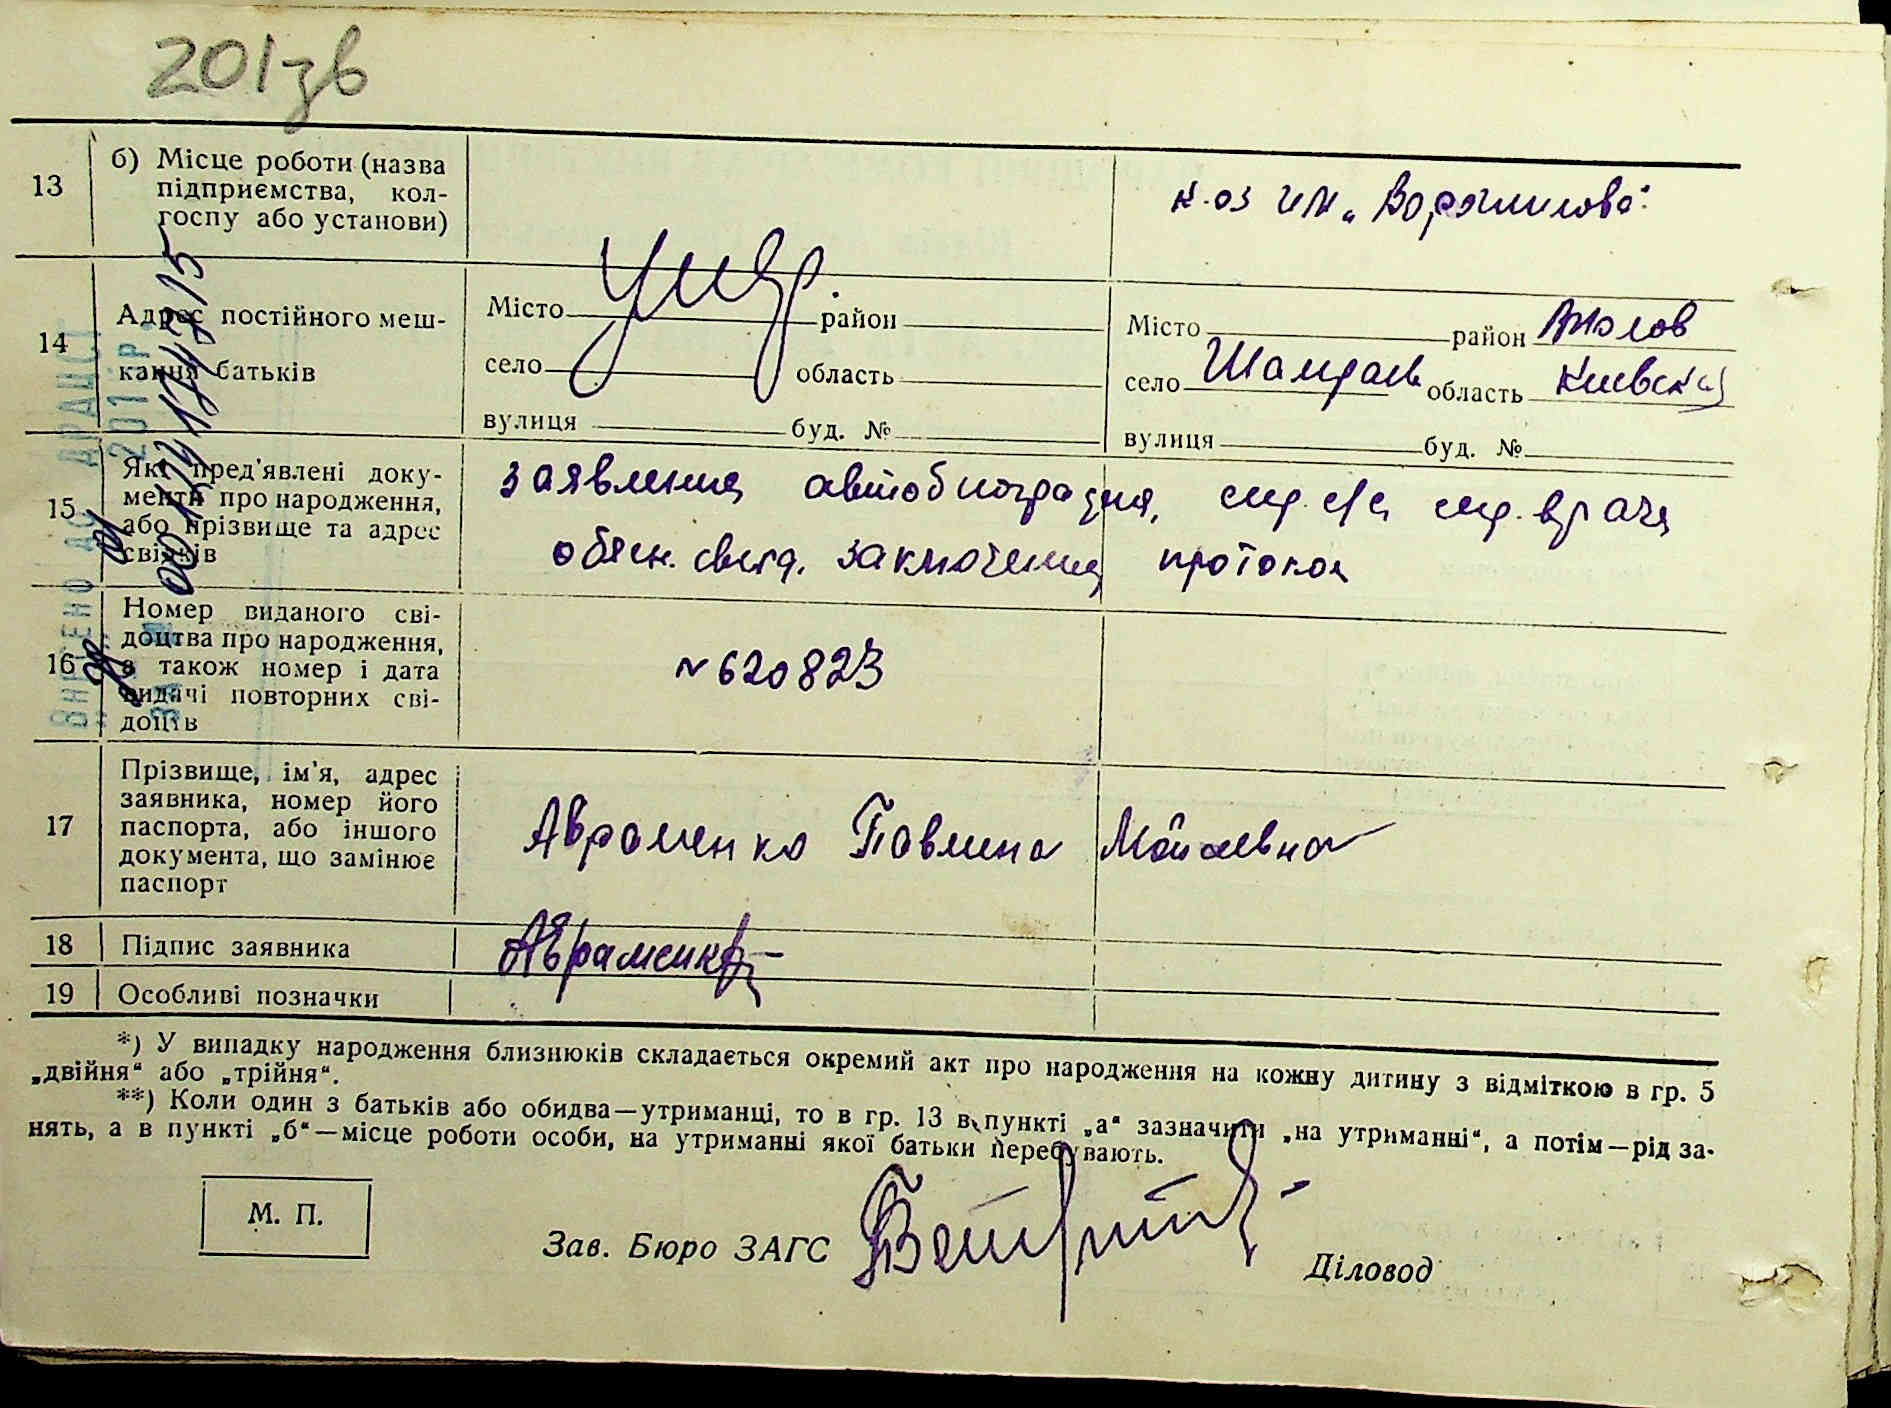 201зв
13
б) Місце роботи (назва
підприємства, кол-
госпу або установи)
к-оз им „Ворошилова“
14
Адрес постійного меш-
кання батьків
Місто район
село область
вулиця буд. №
умер.
Місто район
село Шамраевк область Киевска
вулиця буд. №
15
Які пред'явлені доку-
менти про народження,
або прізвище та адрес
свідків
заявление автобиография, спр. с/с спр. врача
обясн. свид. заключение протокол
16
Номер виданого сві-
доцтва про народження,
а також номер і дата
видачі повторних сві-
доцтв
N 620823
17
Прізвище, ім'я, адрес
заявника, номер його
паспорта, або іншого
документа, що замінює
паспорт
Авраменко Павлина Мойсевна
18
Підпис заявника
Авраменко
19
Особливі позначки
*) У випадку народження близнюків складається окремий акт про народження на кожну дитину з відміткою в гр. 5
„двійня“ або „трійня“.
**) Коли один з батьків або обидва—утриманці, то в гр. 13 в пункті „а“ зазначити „на утриманні“, а потім—рід за-
нять, а в пункті „б“—місце роботи особи, на утриманні якої батьки перебувають.
М. П.
Зав. Бюро ЗАГС
Діловод